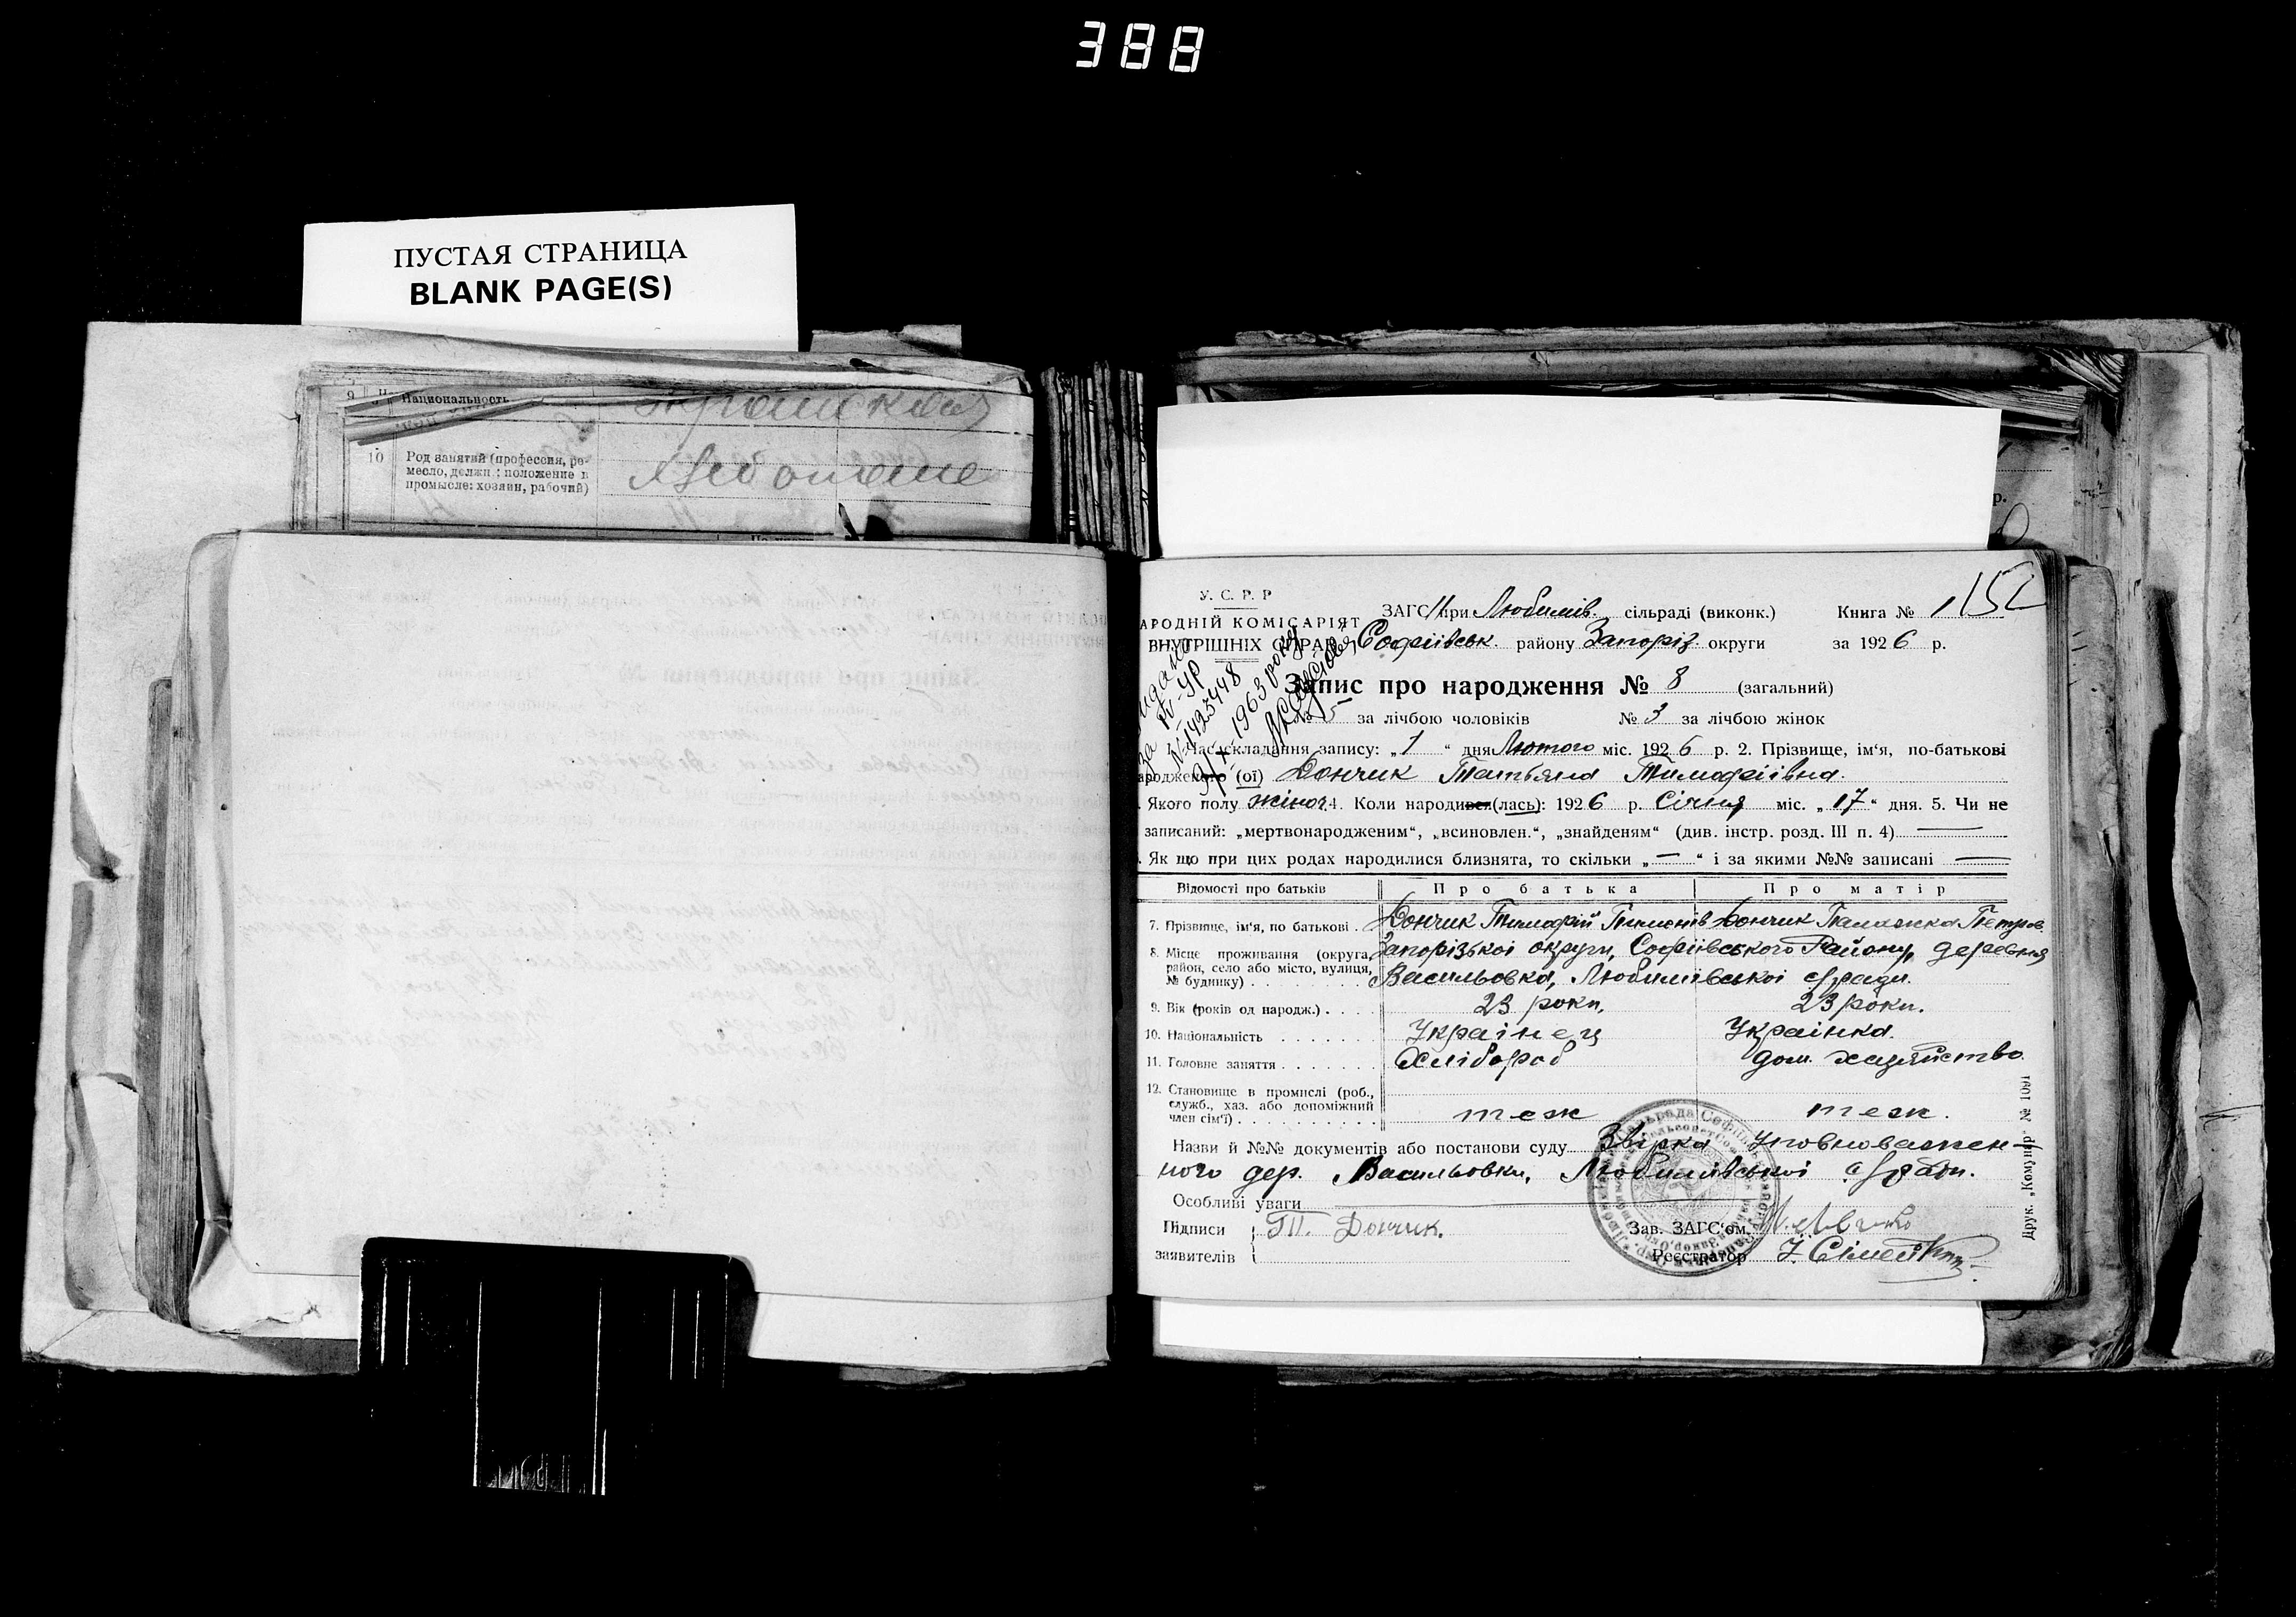 388
ПУСТАЯ СТРАНИЦА
BLANK PAGE(S)
9 Национальность
10 Род занятий (профессия, ре-
месло, должн.: положение в
промысле: хозяин, рабочий)
У. С. Р. Р
АРОДНІЙ КОМІСАРІЯТ
ВНУТРІШНІХ СПРАВ
152
ЗАГС при Любимів. сільраді (виконк.) Книга № 1
Софіівськ. району Запоріз. округи за 1926 р.
Запис про народження № 8 (загальний)
№ 5 за лічбою чоловіків № 3 за лічбою жінок
Час складання запису: „1“ дня Лютого міс. 1926 р. 2. Прізвище, ім‘я, по-батькові
ародженого (ої) Дончик Татьяна Тимофіівна.
Якого полу жіноч. 4. Коли народився (лась): 1926 р. Січня міс. „17“ дня. 5. Чи не
записаний: „мертвонародженим“, „всиновлен.“, „знайденям“ (див. інстр. розд. III п. 4) —
Як що при цих родах народилися близнята, то скільки „—“ і за якими №№ записані —
Відомості про батьків Про батька Про матір
7. Прізвище, ім‘я, по батькові . Дончик Тимофій Дончик Палажка Петров.
8. Місце проживання (округа, район, село або місто, вулиця, № будинку) Запорізькоі округи, Софіівського Району, деревня
Васильовка, Любимівськоі с/ради.
9. Вік (років од народж.) 23 роки. 23 роки.
10. Національність Украінец Украінка.
11. Головне заняття Хлібороб дом. хазяйство
12. Становище в промислі (роб.,
служб., хаз. або допоміжний
член сім‘ї) теж теж.
Назви й №№ документів або постанови суду Звірка уповноважен-
ного дер. Васильовки, Любимівськоі с/ради.
Особливі уваги
Підписи
заявителів Т. Дончик.
Зав. ЗАГС‘ом
Реєстратор
Друк. „Комунар“ № 1091
№ 423448
1963 року